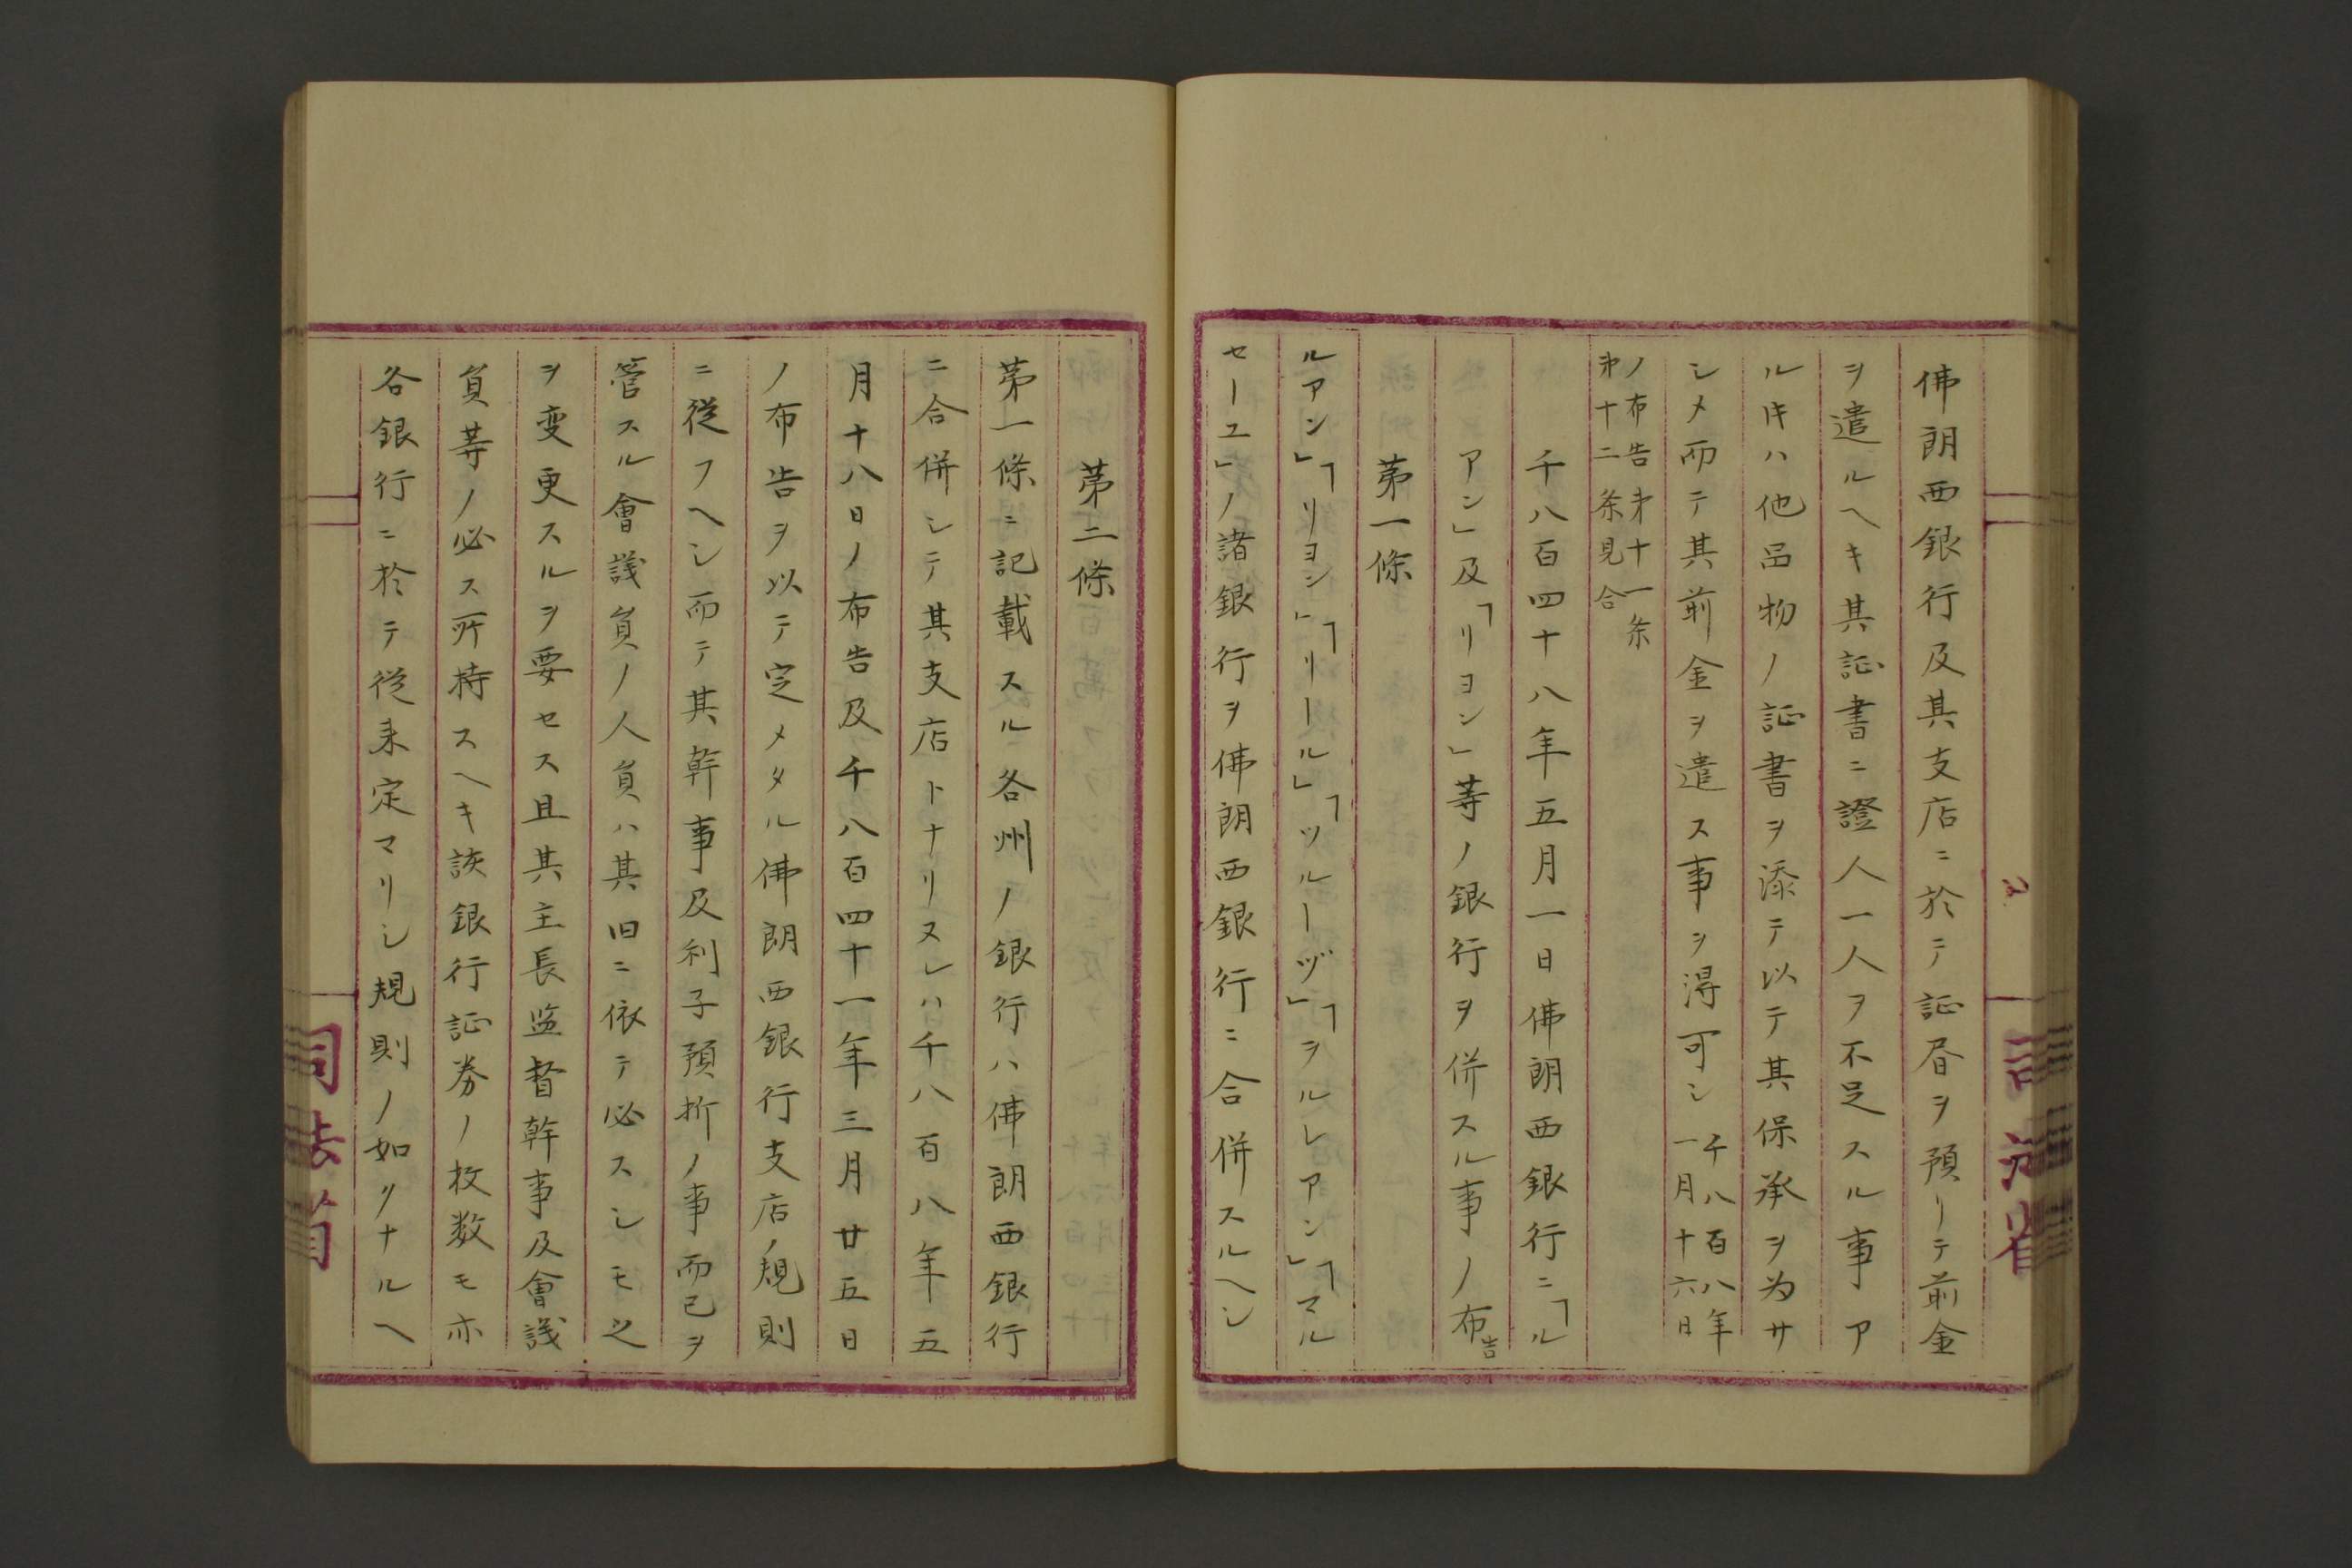 佛朗西銀行及其支店ニ於テ証昏ヲ預リテ前金
ヲ遣ルヘキ其証書ニ證人一人ヲ不足スル事ア
ルキハ他品物ノ証書ヲ添テ以テ其保承ヲ为サ
シメ而テ其前金ヲ遣ス事ヲ得可シ
千八百八年
一月十六日
ノ布告第十一条
第十二条見合
千八百四十八年五月一日佛朗西銀行ニ「ル
アン」及「リヨン」等ノ銀行ヲ併スル事ノ布告
第一條
ルアン」「リヨン」「リール」「ツルーヅ」「ヲルレアン」「マル
セーユ」ノ諸銀行ヲ佛朗西銀行ニ合併スルヘシ
第二條
第一條ニ記載スル各州ノ銀行ハ佛朗西銀行
ニ合併シテ其支店トナリヌレハ千八百八年五
月十八日ノ布告及千八百四十一年三月廿五日
ノ布告ヲ以テ定メタル佛朗西銀行支店ノ規則
ニ從フヘシ而テ其幹事及利子預折ノ事而已ヲ
管スル會議員ノ人員ハ其旧ニ依テ必スシモ之
ヲ变更スルヲ要セス且其主長监督幹事及會議
員等ノ必ス所持スヘキ該銀行証券ノ枚数モ亦
各銀行ニ於テ從来定マリシ規則ノ如クナルヘ
司法省
司法省